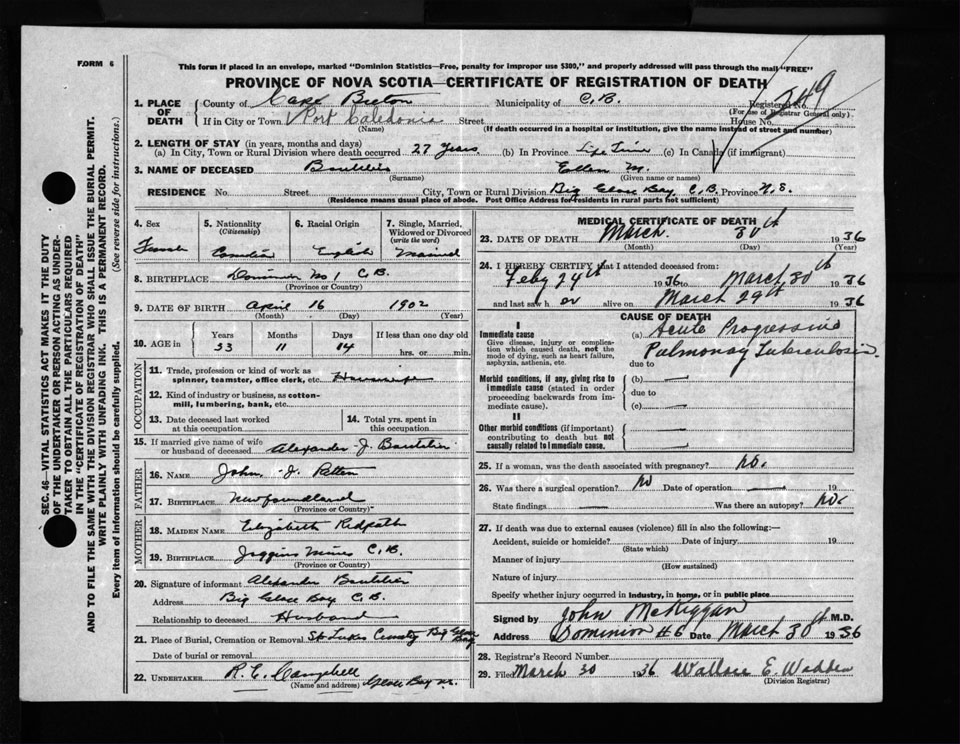 FORM 6
This form if placed in an envelope, marked "Dominion Statistics—Free, penalty for improper use $300," and properly addressed will pass through the mail "FREE"
PROVINCE OF NOVA SCOTIA—CERTIFICATE OF REGISTRATION OF DEATH
1. PLACE OF DEATH County of Cape Breton Municipality of C.B. Registered No. 549
(For use of Registrar General only)
If in City or Town Port Caledonia Street House No.
(Name) (If death occurred in a hospital or institution, give the name instead of street and number)
2. LENGTH OF STAY (in years, months and days)
(a) In City, Town or Rural Division where death occurred 27 years. (b) In Province Life Time (c) In Canada (if immigrant)
3. NAME OF DECEASED Boutilier Ellen M.
(Surname) (Given name or names)
RESIDENCE No. Street City, Town or Rural Division Big Glace Bay, C.B. Province N.S.
(Residence means usual place of abode. Post Office Address for residents in rural parts not sufficient)
4. Sex Female
5. Nationality (Citizenship) Canadian
6. Racial Origin English
7. Single, Married, Widowed or Divorced (write the word) Married
8. BIRTHPLACE Dominion No 1 C.B.
(Province or Country)
9. DATE OF BIRTH April 16 1902
(Month) (Day) (Year)
10. AGE in Years Months Days If less than one day old
33 11 14 hrs. or min.
OCCUPATION
11. Trade, profession or kind of work as spinner, teamster, office clerk, etc. Housewife
12. Kind of industry or business, as cotton-mill, lumbering, bank, etc.
13. Date deceased last worked at this occupation
14. Total yrs. spent in this occupation
15. If married give name of wife or husband of deceased Alexander J. Boutilier
FATHER
16. NAME John J.
17. BIRTHPLACE Newfoundland
(Province or Country)
MOTHER
18. MAIDEN NAME Elizabeth Redpath
19. BIRTHPLACE Joggins Mines C.B.
(Province or Country)
20. Signature of informant Alexander Boutilier
Address Big Glace Bay C.B.
Relationship to deceased Husband
21. Place of Burial, Cremation or Removal St Lukes Cemetery Big Glace Bay
Date of burial or removal
22. UNDERTAKER R. E. Campbell
(Name and address) Glace Bay N.S.
MEDICAL CERTIFICATE OF DEATH
23. DATE OF DEATH March. 30th 1936
(Month) (Day) (Year)
24. I HEREBY CERTIFY that I attended deceased from:
Feby 24th 1936 to March 30th 1936
and last saw her alive on March 29th 1936
CAUSE OF DEATH
I
Immediate cause
Give disease, injury or complication which caused death, not the mode of dying, such as heart failure, asphyxia, asthenia, etc.
(a) Acute Progressive
Pulmonary Tuberculosis.
due to
Morbid conditions, if any, giving rise to immediate cause (stated in order proceeding backwards from immediate cause).
(b) —
due to
(c) —
II
Other morbid conditions (if important) contributing to death but not causally related to immediate cause.
25. If a woman, was the death associated with pregnancy? no.
26. Was there a surgical operation? no Date of operation — 19
State findings — Was there an autopsy? no.
27. If death was due to external causes (violence) fill in also the following:—
Accident, suicide or homicide? Date of injury 19
(State which)
Manner of injury
(How sustained)
Nature of injury
Specify whether injury occurred in industry, in home, or in public place
Signed by John McKiggan M.D.
Address Dominion #6 Date March 30th 1936
28. Registrar's Record Number
29. Filed March 30 1936 Wallace E. Wadden
(Division Registrar)
SEC. 46—VITAL STATISTICS ACT MAKES IT THE DUTY
OF THE UNDERTAKER OR PERSON ACTING AS UNDER-
TAKER TO OBTAIN ALL THE PARTICULARS REQUIRED
IN THE "CERTIFICATE OF REGISTRATION OF DEATH"
AND TO FILE THE SAME WITH THE DIVISION REGISTRAR WHO SHALL ISSUE THE BURIAL PERMIT.
WRITE PLAINLY WITH UNFADING INK. THIS IS A PERMANENT RECORD.
Every item of information should be carefully supplied. (See reverse side for instructions.)